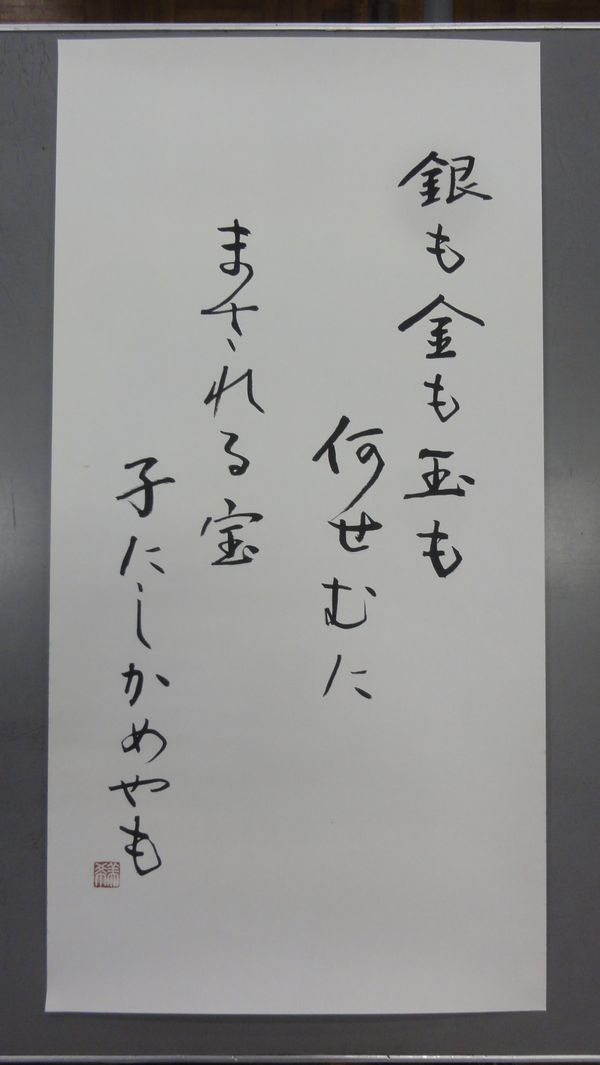 銀も金も玉も
何せむに
まされる宝
子にしかめやも